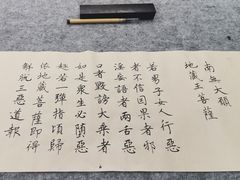 南無大願
地藏王菩薩
若男子女人行惡
者不信因果者邪
淫妄語者兩舌惡
口者毀謗大乘者
如是衆生必墮惡
趣若一彈指頃歸
依地藏菩薩即得
解脫三惡道報